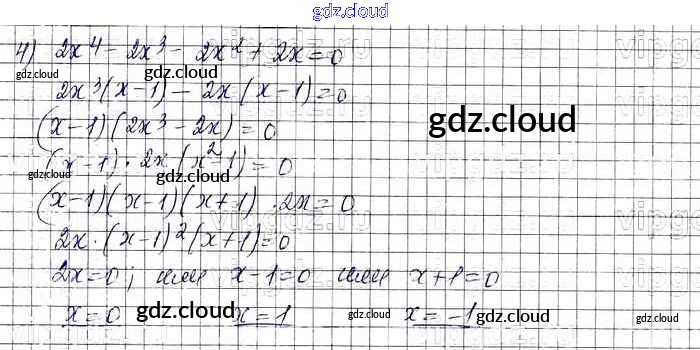 gdz.cloud
4) 2x⁴ - 2x³ - 2x² + 2x = 0
gdz.cloud gdz.cloud
2x³(x-1) - 2x(x-1) = 0
(x-1)(2x³ - 2x) = 0 gdz.cloud
(x-1)·2x(x²-1) = 0
gdz.cloud gdz.cloud
(x-1)(x-1)(x+1)·2x = 0
2x·(x-1)²(x+1) = 0
2x=0; или x-1=0 или x+1=0
x=0 gdz.cloud x=1 gdz.cloud x=-1 gdz.cloud gdz.cloud